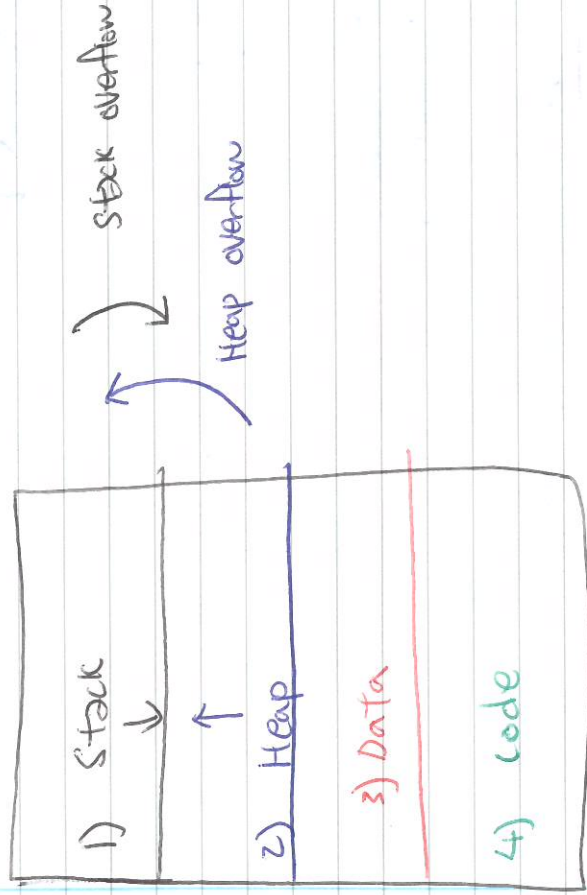 1) Stack
2) Heap
3) Data
4) code
Stack overflow
Heap overflow